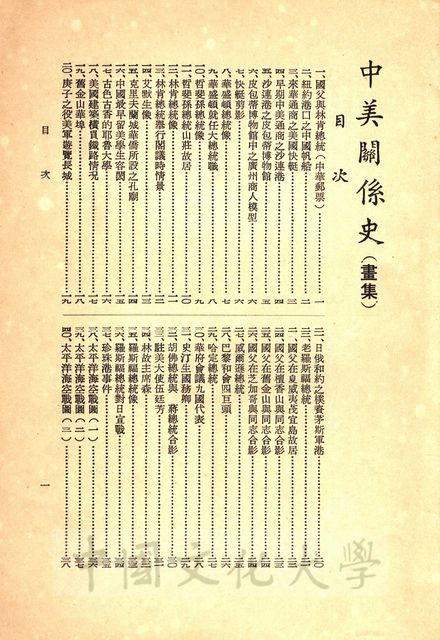 中美關係史(畫集)
目次
一、國父與林肯總統(中華郵票)……一
二、紐約港口之中國帆船……二
三、來華通商之美國快艇……三
四、早期中美通商之沙連港……四
五、沙連港之皮包蒂博物館……五
六、皮包蒂博物館中之廣州商人模型……六
七、快艇剪影……七
八、華盛頓總統像……七
九、華盛頓就任大總統職……八
一〇、哲斐孫總統像……九
一一、哲斐孫總統山莊故居……一〇
一二、林肯總統像……一一
一三、林肯總統舉行閣議時情景……一二
一四、艾默生像……一三
一五、克里夫蘭城華僑所設之孔廟……一四
一六、中國最早留美學生容閎……一五
一七、古色古香的耶魯大學……一六
一八、美國建築橫貫鐵路情況……一七
一九、舊金山華埠……一八
二〇、庚子之役美軍遊覽長城……一九
二一、日俄和約之樸資茅斯軍港……二〇
二二、老羅斯福總統……二一
二三、國父在夏威夷茂宜島故居……二二
二四、國父在檀香山與同志合影……二三
二五、國父在舊金山與同志合影……二四
二六、國父在芝加哥與同志合影……二五
二七、威爾遜總統……二六
二八、巴黎和會四巨頭……二七
二九、哈定總統……二八
三〇、華府會議九國代表……二八
三一、史汀生國務卿……二九
三二、胡佛總統與 蔣總統合影……三〇
三三、駐美大使伍廷芳……三一
三四、林故主席森……三二
三五、羅斯福總統像……三三
三六、羅斯福總統對日宣戰……三四
三七、珍珠港事件……三五
三八、太平洋海空戰圖(一)……三六
三九、太平洋海空戰圖(二)……三七
四〇、太平洋海空戰圖(三)……三八
目次
一
中國文化大學